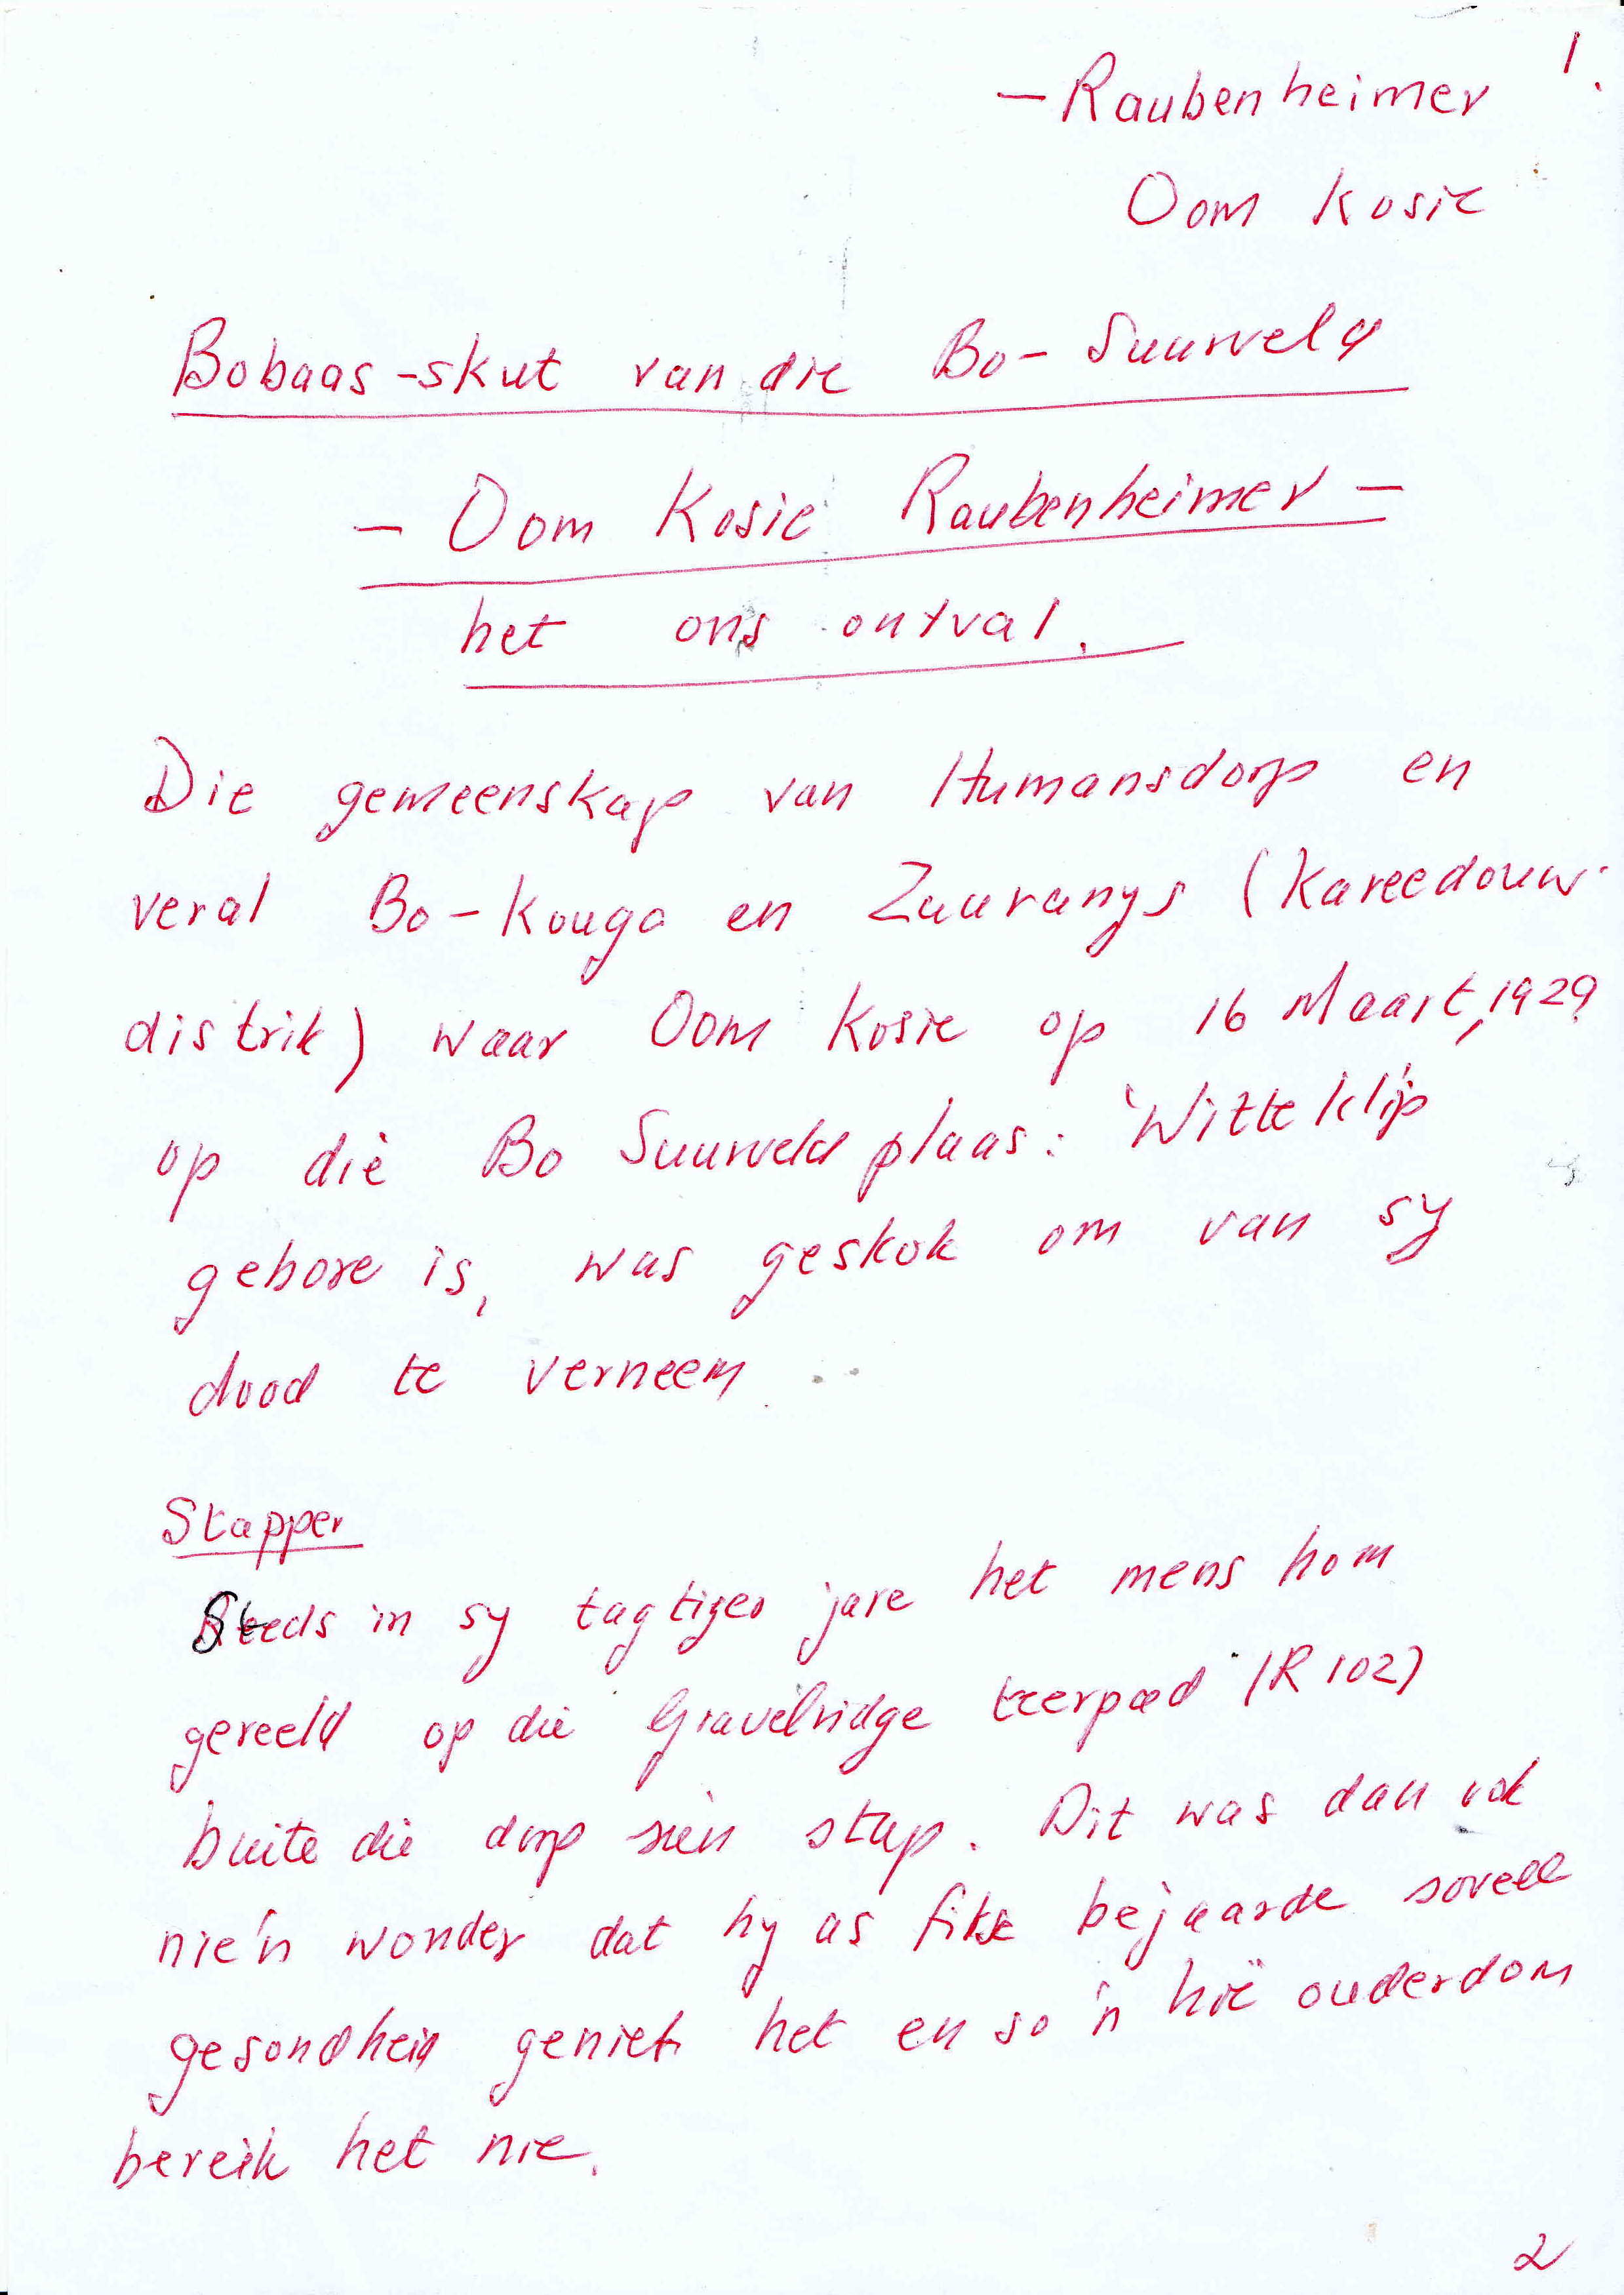 1.
— Raubenheimer
Oom Kosie
Bobaas-skut van die Bo-Suurveld
- Oom Kosie Raubenheimer -
het ons ontval.
Die gemeenskap van Humansdorp en
veral Bo-Kouga en Zuuranys (Kareedouw-
distrik) waar Oom Kosie op 16 Maart, 1929
op die Bo Suurveld plaas: 'Witteklip'
gebore is, was geskok om van sy
dood te verneem.
Stapper
Steeds in sy tagtiger jare het mens hom
gereeld op die Gravelridge teerpad (R 102)
buite die dorp sien stap. Dit was dan ook
nie 'n wonder dat hy as fikse bejaarde soveel
gesondheid geniet het en so 'n hië ouderdom
bereik het nie.
2